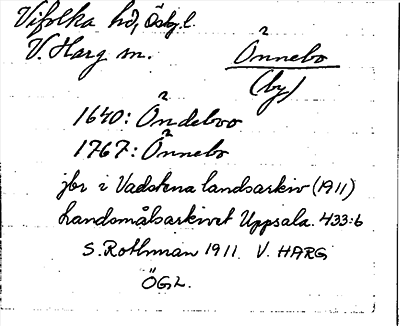 Vifolka hd, Ösby.l.
V. Harg sn. Önnebo
(by)
1640: Öndeboo
1767: Önnebo
jbr i Vadstena landsarkiv (1911)
Landsmålsarkivet Uppsala. 433:6
S. Rothman 1911. V. HARG
ÖGL.